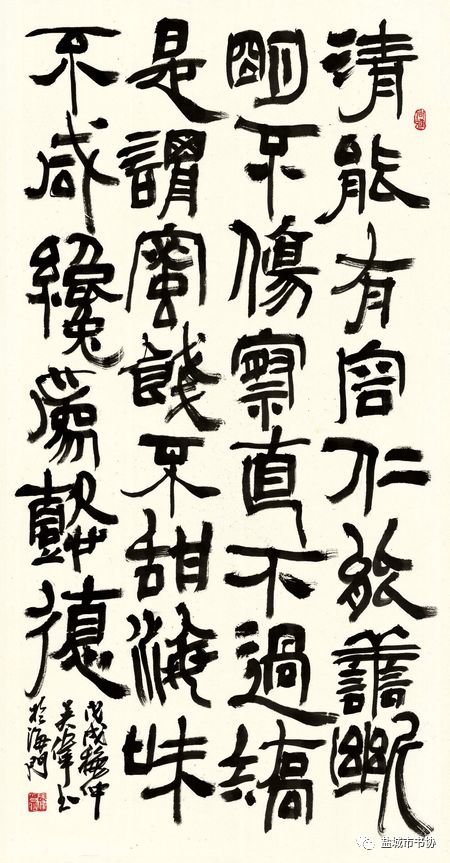 清能有容仁能譱斷
明不傷察直不過矯
是謂蜜餞不甜海味
不咸纔為懿德
戊戌仲
吴偉书
於海門
盐城市书协